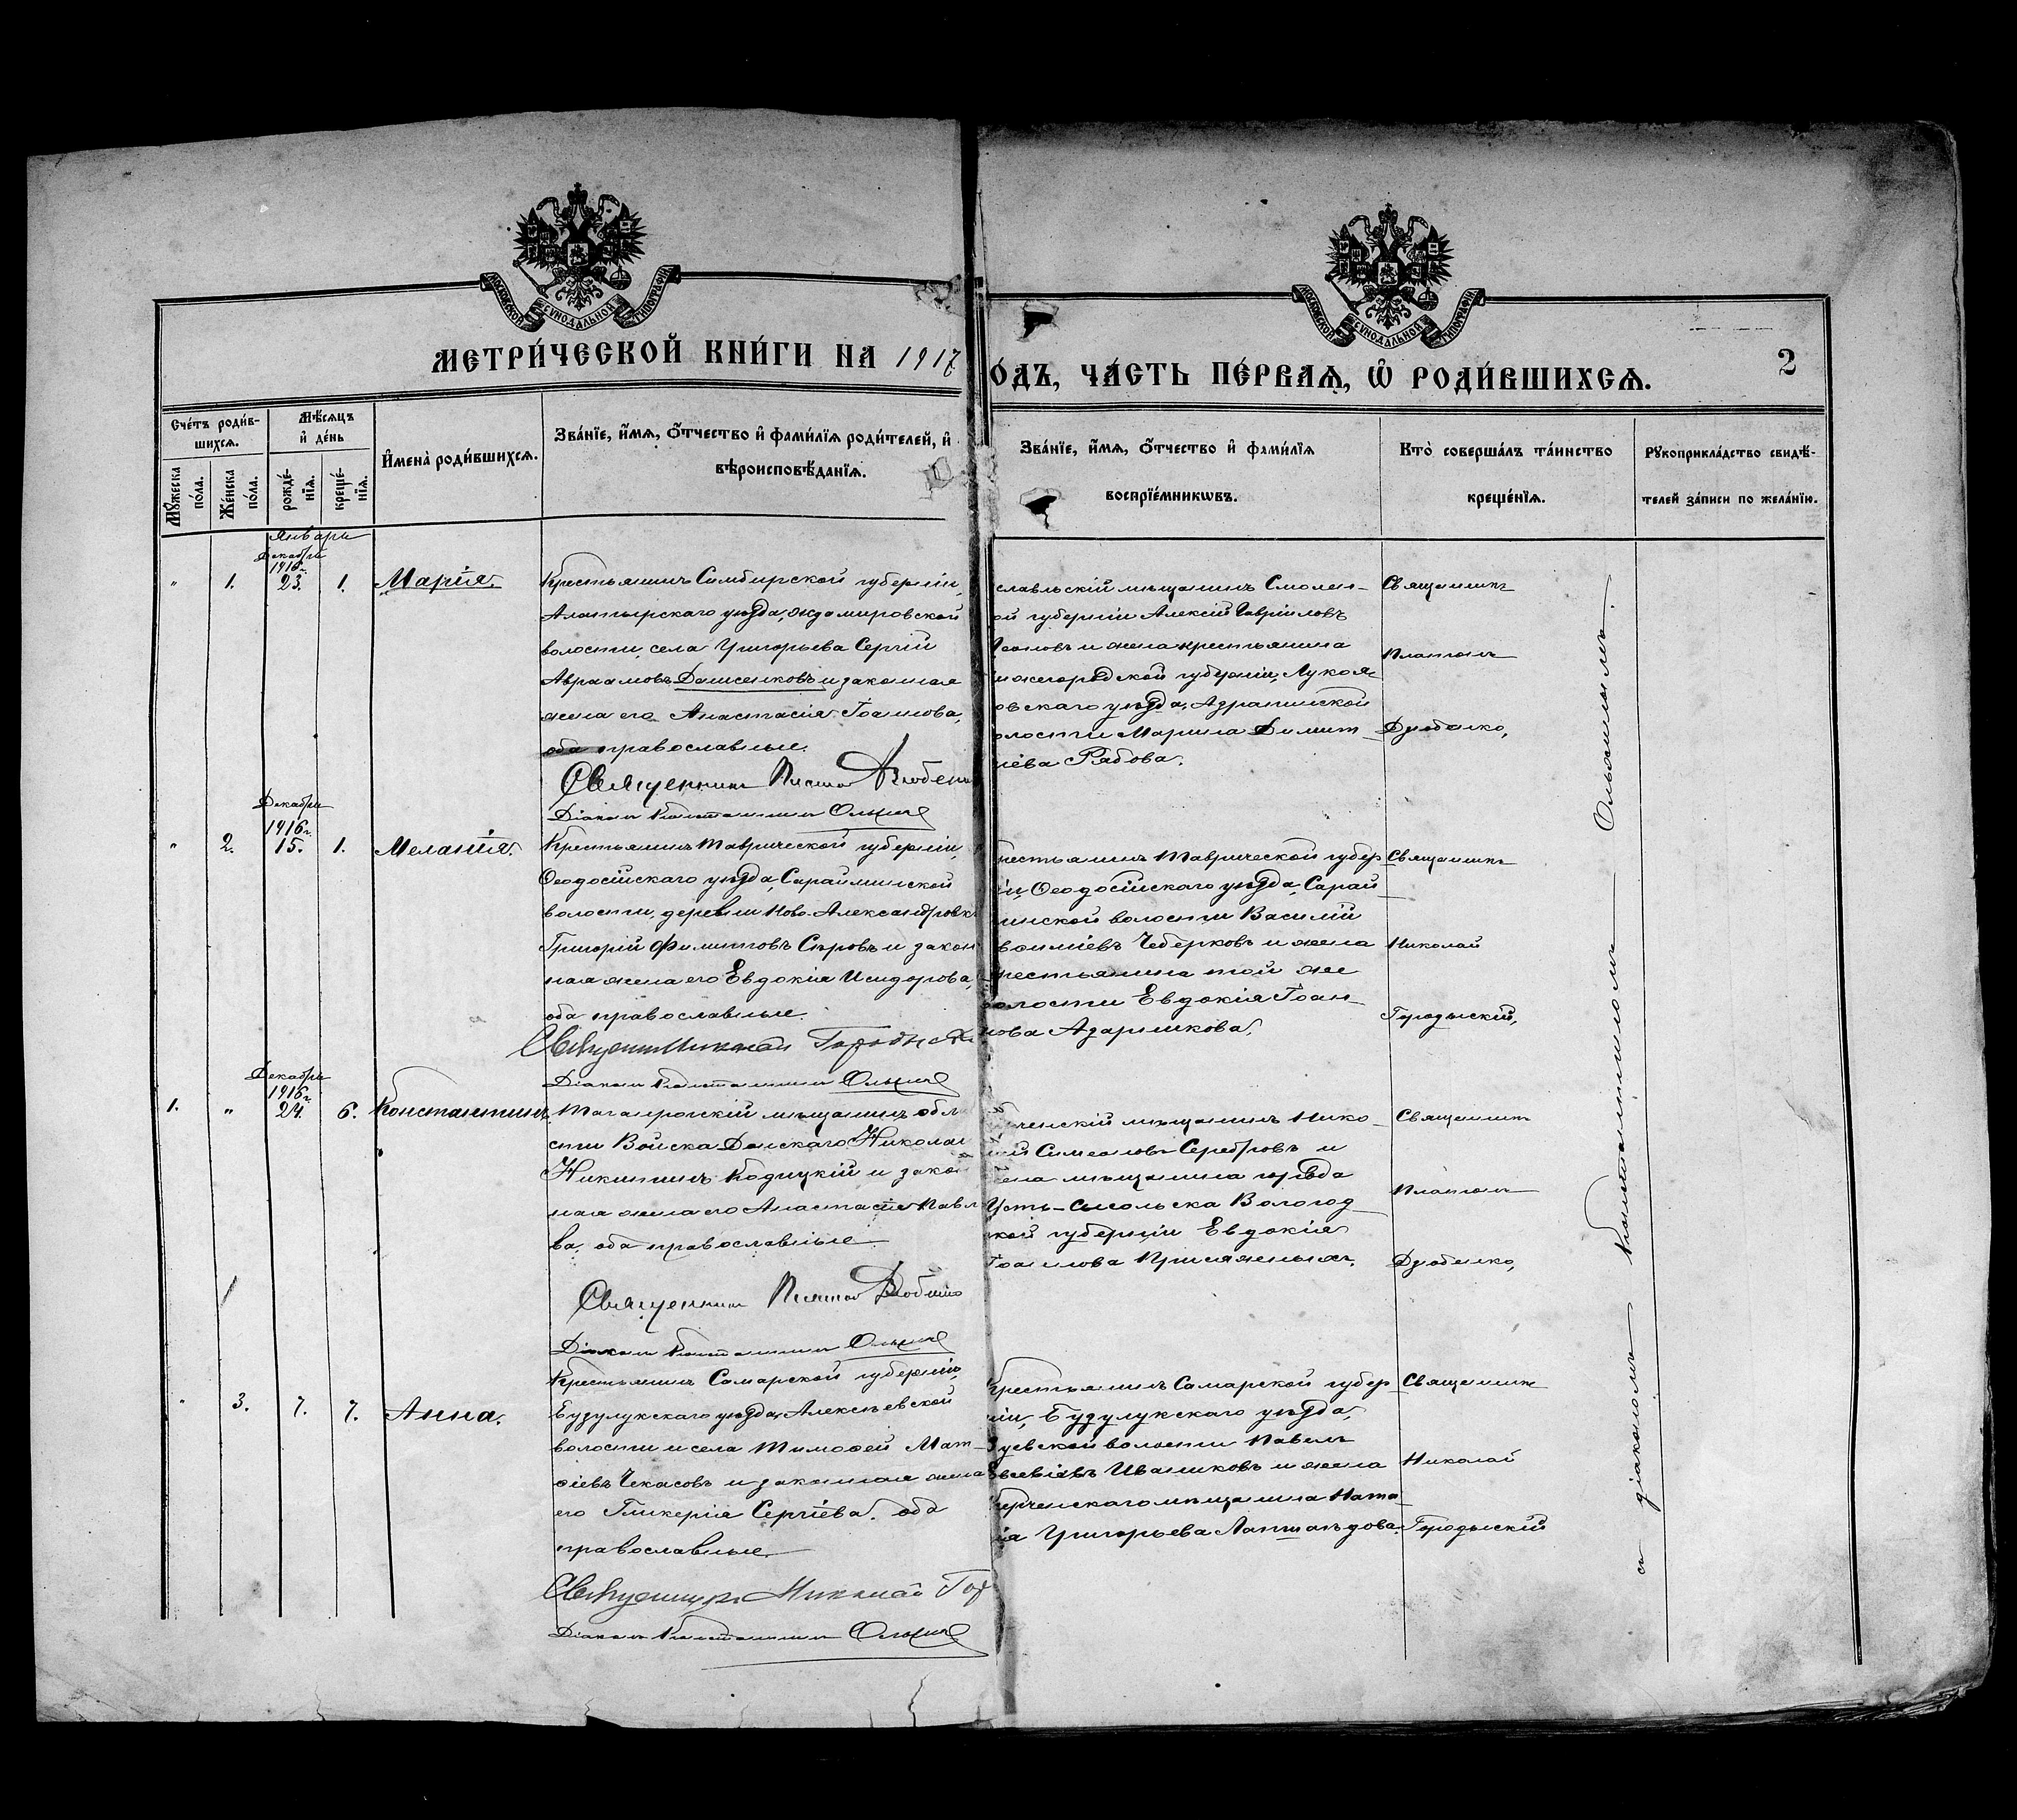 МОСКОВСКОЙ СѴНОДАЛЬНОЙ ТИПОГРАФІИ
МОСКОВСКОЙ СѴНОДАЛЬНОЙ ТИПОГРАФІИ
МЕТРИ́ЧЕСКОЙ КНИ́ГИ НА 1917
О́ДЪ, ЧА́СТЬ ПЕ́РВАѦ, Ѡ РОДИ́ВШИХСѦ.
2
Сче́тъ роди́в-
шихсѧ.
Мѣ́сѧцъ
и҆ де́нь
Мꙋ́жеска
по́ла.
Же́нска
по́ла.
рожде́-
нїѧ.
креще́-
нїѧ.
И҆мена̀ роди́вшихсѧ.
Зва́нїе, и҆́мѧ, ѻ҆́тчество и҆ фами́лїѧ роди́телей, и҆
вѣроисповѣ́данїѧ.
Зва́нїе, и҆́мѧ, ѻ҆́тчество и҆ фами́лїѧ
воспрїе́мникѡвъ.
Кто̀ соверша́лъ та́инство
креще́нїѧ.
Рꙋкоприкла́дство свидѣ́-
телей за́писи по жела́нїю.
Январь
Декабрь
1916 г.
" 1. 23. 1. Марія.
Крестьянинъ Симбирской губерніи,
Алатырскаго уѣзда, Ждамировской
волости, села Григорьева Сергій
Авраамовъ Денисенковъ и законная
жена его Анастасія Іоаннова,
оба православные.
Священникъ Платон Дзюбенко
Діаконъ Константинъ Ольхинъ
славльскій мѣщанинъ Смолен-
ой губерніи Алексій Гавріиловъ
и жена крестьянина
ижегородской губерніи, Лукоя-
овскаго уѣзда,
олости Марина Димит-
іева Рябова.
Священникъ
Платонъ
Дзюбенко,
Декабрь
1916 г.
" 2. 15. 1. Меланія.
Крестьянинъ Таврической губерніи,
Ѳеодосійскаго уѣзда, Сарайминской
волости, деревни Ново-Александровк
Григорій Филипповъ Сѣровъ и закон
ная жена его Евдокія Исидорова,
оба православные.
Священникъ Николай Городы
Діаконъ Константинъ Ольхинъ
рестьянинъ Таврической губер
іи, Ѳеодосійскаго уѣзда, Сарай
минской волости Василій
Чеберковъ и жена
рестьянина той же
волости Евдокія Іоан
нова Адаричкова.
Священникъ
Николай
Городыскій,
Декабрь
1916 г.
1. " 24. 6. Константинъ.
Таганрогскій мѣщанинъ обла
сти Войска Донскаго Николай
Никитинъ Кодицкій и закон
ная жена его Анастасія Павло
ва, оба православные.
Священникъ Платон Дзюбенко
Діаконъ Константинъ Ольхинъ
ерченскій мѣщанинъ Нико
лай Симеоновъ Серебровъ и
жена мѣщанина города
Усть-Сысольска Вологод
ской губерніи Евдокія
Іоаннова Присяжныхъ.
Священникъ
Платонъ
Дзюбенко,
" 3. 7. 7. Анна.
Крестьянинъ Самарской губерніи,
Бузулукскаго уѣзда, Алексѣевской
волости и села Тимоѳей Мат-
ѳіевъ Чекасовъ и законная жена
его Гликерія Сергіева, оба
православные.
Священникъ Николай Гор
Діаконъ Константинъ Ольхинъ
Крестьянинъ Самарской губер
ніи, Бузулукскаго уѣзда,
волости Павелъ
Евсевіевъ Иваниковъ и жена
Керченскаго мѣщанина Ната
лія Григорьева
Священникъ
Николай
Городыскій
съ діакономъ Константиномъ Ольхинымъ.